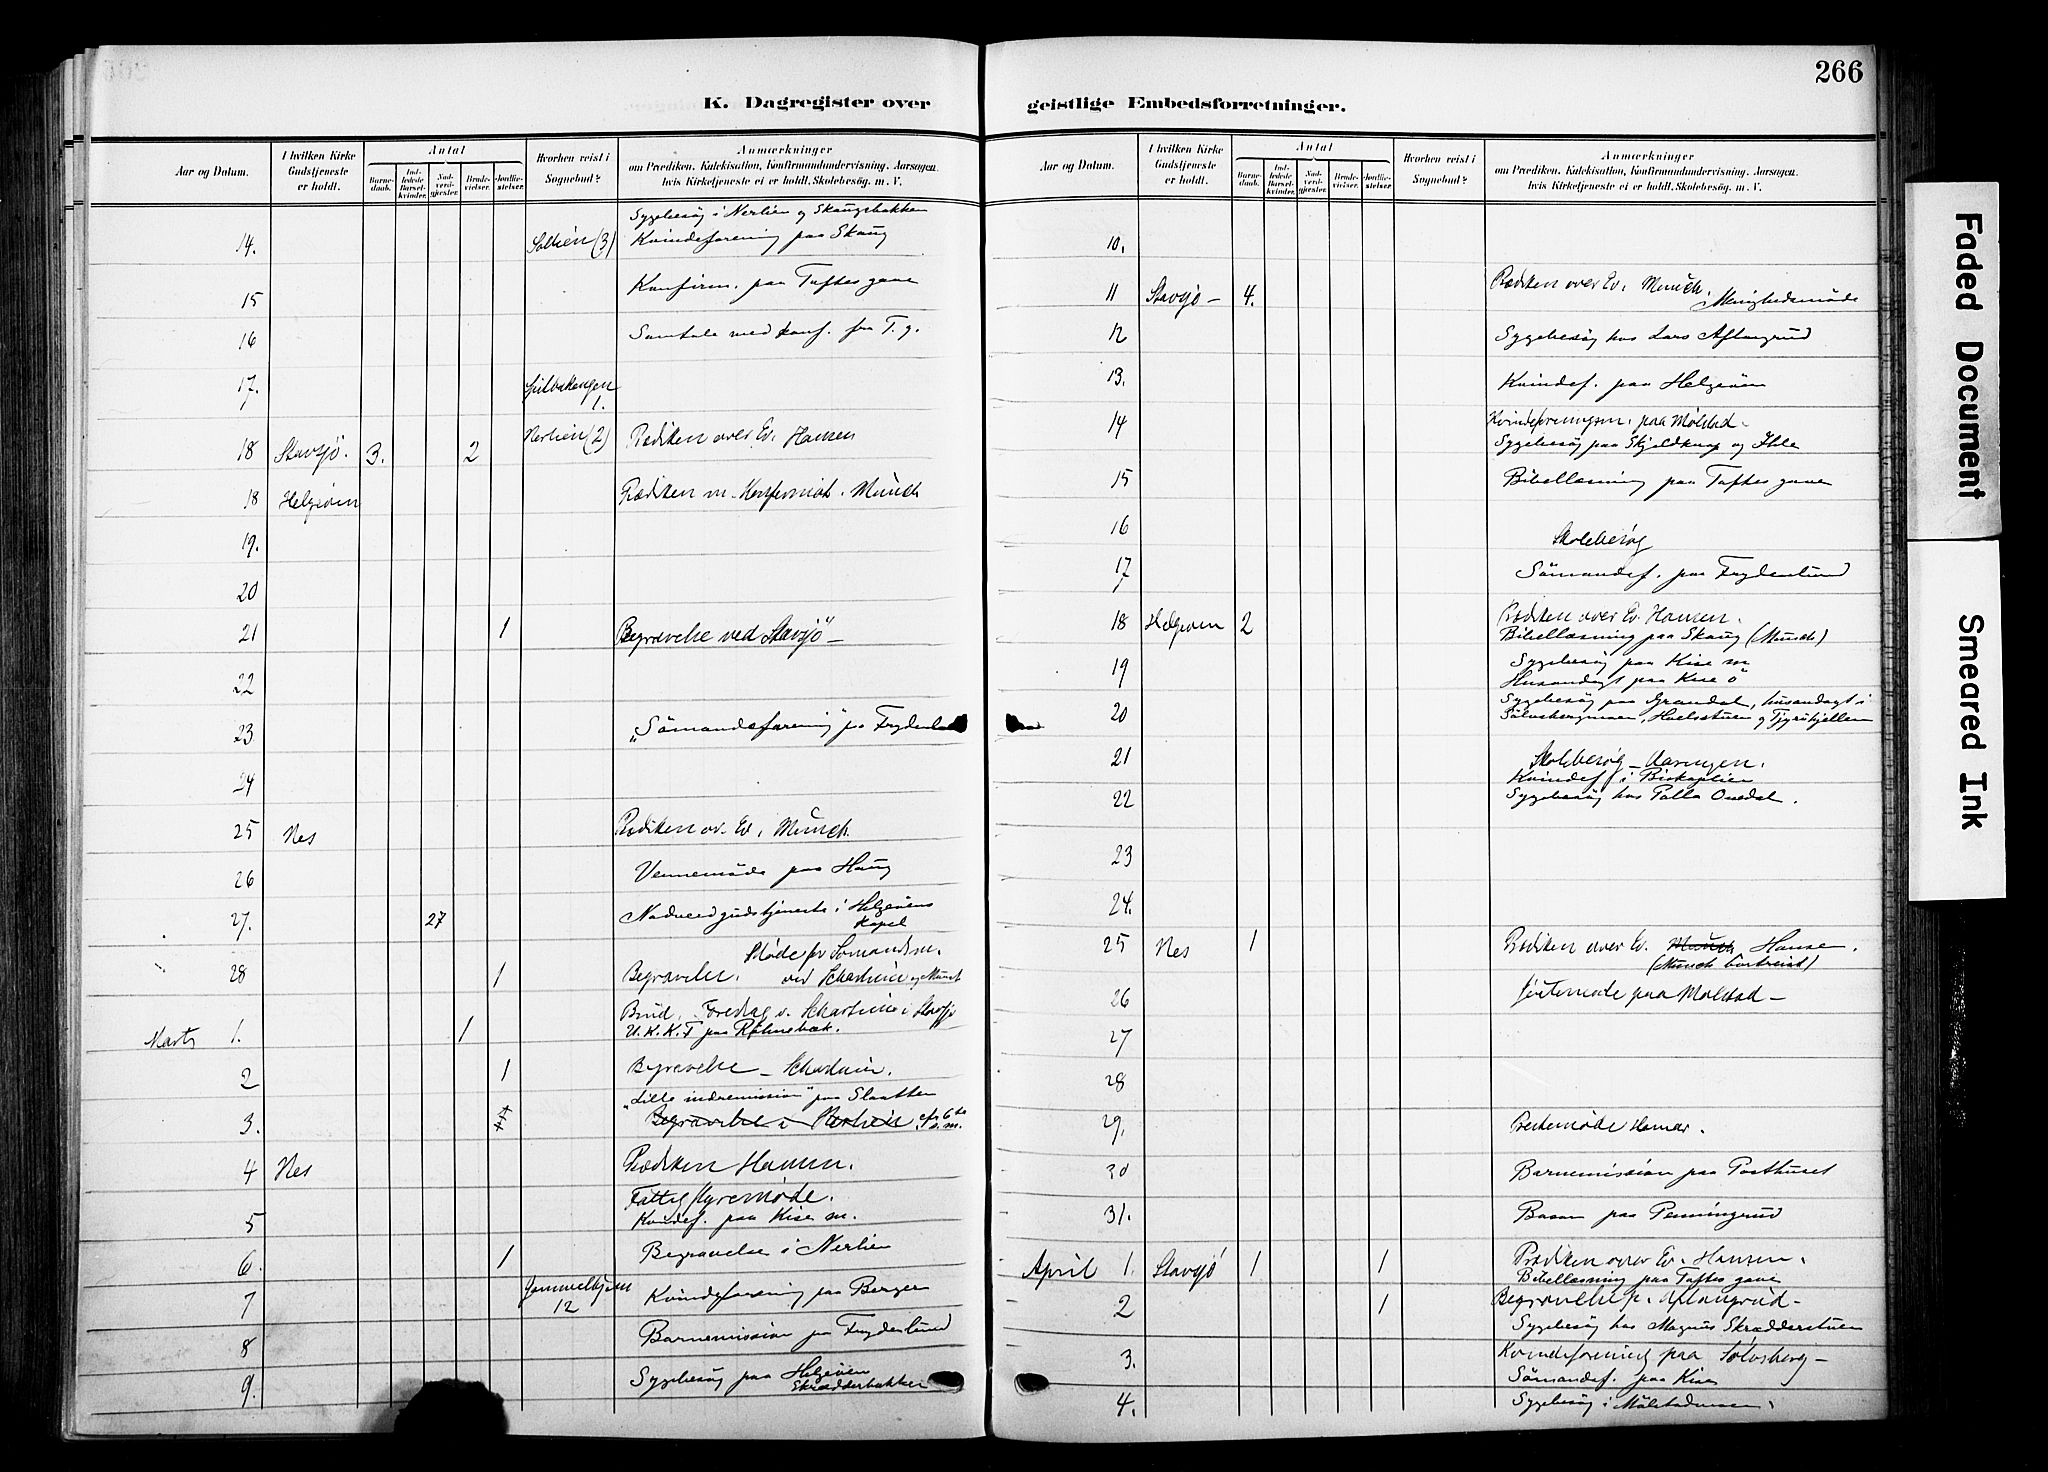 266
K. Dagregister over
geistlige Embedsforretninger.
Aar og Datum.
I hvilken Kirke Gudstjeneste er holdt.
Antal
Barnedaab.
Indledede Barselkvinder.
Nadverdgjester.
Brudevielser.
Jordfæstelser.
Hvorhen reist i Sognebud?
Anmærkninger
om Prædiken, Katekisation, Konfirmandundervisning. Aarsagen,
hvis Kirketjeneste ei er holdt. Skolebesøg. m. V.
Sygebesøg i Nerlien og Skaugsbakken
14. (3) Kvindeforening paa Skaug
15 Konfirm. paa Toftes gave
16 Samtale med konf. fra T. g.
17. 1.
18 Stavsjø. 3. 2 Nerlien (2) Prædiken over Ev. Hansen
18 Helgøien Prædiken m. Munch
19.
20
21 1 Begravelse ved Stavsjø –
22
23 "Sömandsforening" pa
24
25 Nes Prædiken ov. Ev. Munch.
26 Vennemöde paa Haug
27. 27 Nadverdgudstjeneste i Helgøens
Kapel
Møde for Sømandsm.
28 1 Begravelse. ved
Marts 1. 1 Brud. Foredrag v. i Stavsjø
U. K. K. F paa
2 1 Begravelse –
"Lille indremission" paa Slaatten
3. Begravelse i Nerlien
4 Nes Prædiken Hansen.
Fattigstyremøde.
5 Kvindef. paa Kise m.
6. 1 Begravelse i Nerlien
7 12 Kvindeforening paa Berger
8 Barnemission pa Frydenlund
9. Sygebesøg paa Helgøien
Skrædderbakken
Aar og Datum.
I hvilken Kirke Gudstjeneste er holdt.
Antal
Barnedaab.
Indledede Barselkvinder.
Nadverdgjester.
Brudevielser.
Jordfæstelser.
Hvorhen reist i Sognebud?
Anmærkninger
om Prædiken, Katekisation, Konfirmandundervisning. Aarsagen,
hvis Kirketjeneste ei er holdt. Skolebesøg. m. V.
10.
11 Stavsjø – 4. Prædiken over Ev. Munch.
Menighedsmöde
12 Sygebesøg hos Lars Aflangrud
13. Kvindef. paa Helgøien
14 Kvindeforeningen. paa Mølstad –
Sygebesøg paa Skjeldknap og
15 Bibellæsning paa Toftes gave
16 Skolebesøg
17 Sömandsf. paa Frydenlund
18 Helgøien 2 Prædiken over Ev. Hansen.
Bibellæsning paa Skaug (Munch)
19 Sygebesøg paa Kise m
Husandagt paa Kise ö
20 Sygebesøg paa Grandal, husandagt i
21 Skolebesøg –
Kvindef i
22 Sygebesøg hos
23
24.
25 Nes 1 Prædiken over Ev. Munch Hansen.
(Munch bortreist)
26 paa Mølstad –
27
28
29. Prestemøde Hamar.
30 Barnemission paa Posthuset
31. Basar paa Penningrud
April 1. Stavsjø 1 1 Prædiken over Ev. Hansen.
Bibellæsning paa Toftes gave
2 1 Begravelse fr. Aflangrud –
Sygebesøg hos Magnus Skrædderstuen
3. Kvindeforening paa Sølvsberg –
Sömandsf. paa Kise
4. Sygebesøg i
Faded Document
Smeared Ink